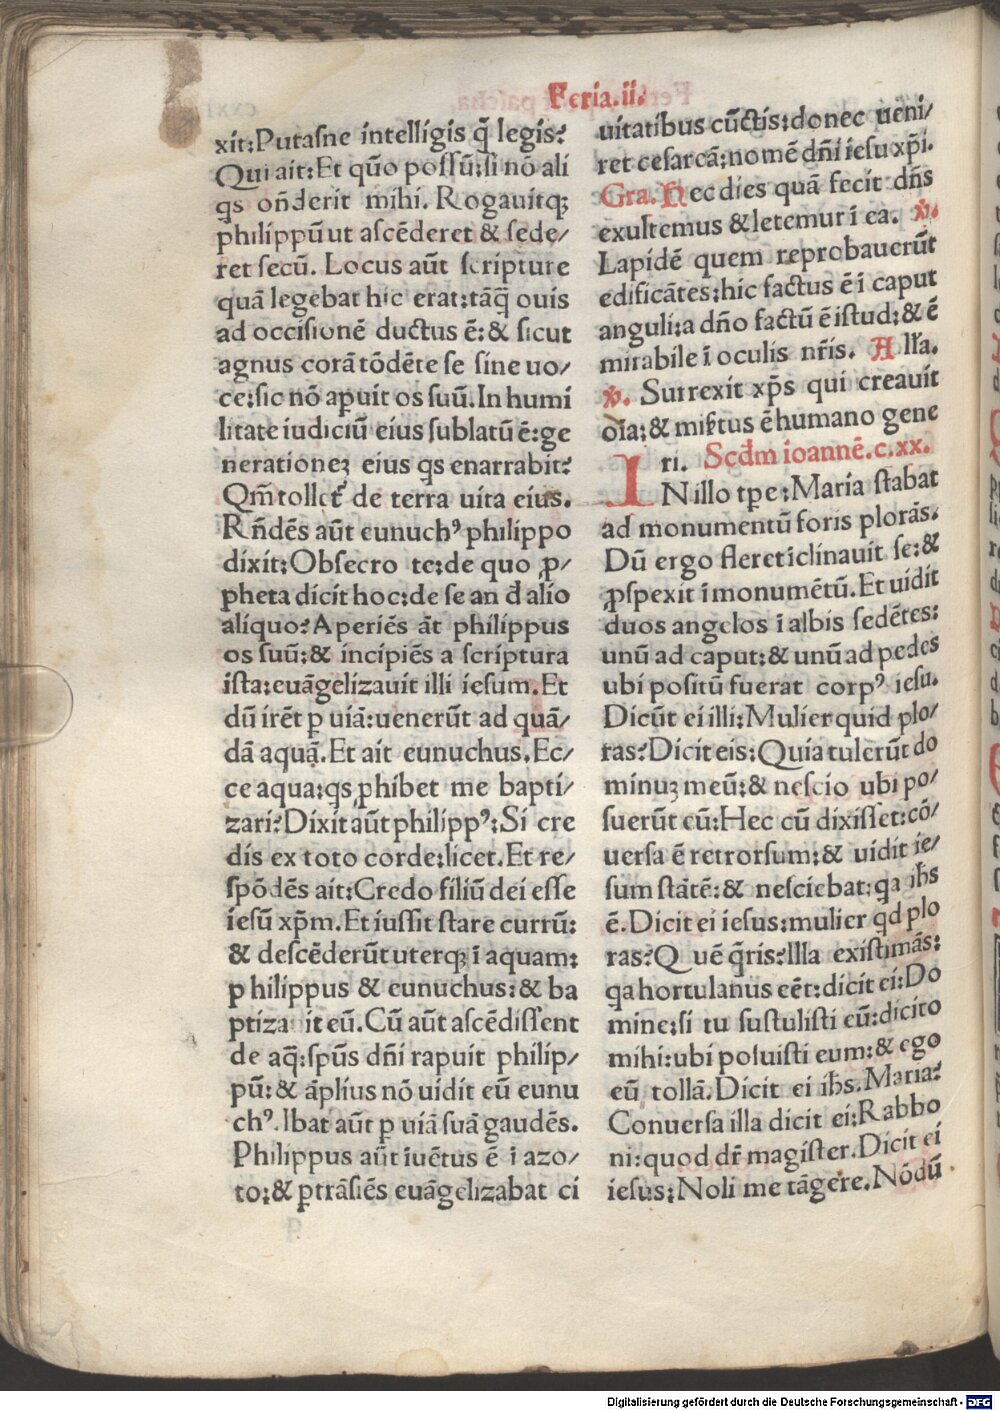 Feria.ii.
xit:Putaſne intelligis q̄ legis?
Qui ait:Et quō poſſū:ſi nō ali
qs oñderit mihi. Rogauitqꝫ
philippū ut aſcēderet & ſede/
ret ſecū. Locus aūt ſcripture
quā legebat hic erat:tāq̄ ouis
ad occiſionē ductus ē:& ſicut
agnus corā tōdēte ſe ſine uo/
ce:ſic nō apuit os ſuū.In humi
litate iudiciū eius ſublatū ē:ge
nerationeꝫ eius qs enarrabit?
Qm̄ tollet᷑ de terra uita eius.
Rñdēs aūt eunuchꝰ philippo
dixit:Obſecro te:de quo ꝓ/
pheta dicit hoc:de ſe an đ alio
aliquo?Aperiēs āt philippus
os ſuū:& incipiēs a ſcriptura
iſta:euāgelizauit illi ieſum.Et
dū irēt ꝑ uiā:uenerūt ad quā/
dā aquā.Et ait eunuchus.Ec/
ce aqua:qs ꝓhibet me bapti/
zari?Dixit aūt philippꝰ:Si cre
dis ex toto corde:licet.Et re/
ſpōdēs ait:Credo filiū dei eſſe
ieſū xp̄m.Et iuſſit ſtare currū:
& deſcēderūt uterqꝫ ī aquam:
philippus & eunuchus:& ba
ptiza it eū.Cū aūt aſcēdiſſent
de aq̄:ſpūs dñi rapuit philip/
pū:& āplius nō uidit eū eunu
chꝰ.Ibat aūt ꝑ uiā ſuā gaudēs.
Philippus aūt iuētus ē ī azo/
to:& ꝑtrāſiēs euāgelizabat ci
uitatibus cūctis:donec ueni/
ret ceſarcā:nomē dñi ieſu xp̄i.
Gra. Hec dies quā fecit dñs
exultemus & letemur ī ea. ℣.
Lapidē quem reprobauerūt
edificātes:hic factus ē ī caput
anguli:a dño factū ē iſtud:& ē
mirabile ī oculis nr̄is. Alľa.
℣. Surrexit xp̄s qui creauit
oīa:& miſtus ē humano gene
ri. Scđm ioannē.c.xx.
IN illo tpe:Maria ſtabat
ad monumentū foris plorās.
Dū ergo fleret īclinauit ſe:&
ꝓſpexit ī monumētū.Et uidit
duos angelos ī albis ſedētes:
unū ad caput:& unū ad pedes
ubi poſitū fuerat corpꝰ ieſu.
Dicūt ei illi:Mulier quid plo/
ras?Dicit eis:Quia tulerūt do
minuꝫ meū:& neſcio ubi po/
ſuerūt eū:Hec cū dixiſſet:cō/
uerſa ē retrorſum:& uidit ie/
ſum ſtātē:& neſciebat:qa ihs
ē.Dicit ei ieſus:mulier qd plo
ras?Quē q̄ris?Illa exiſtimās:
qa hortulanus eēt:dicit ei:Do
mine:ſi tu ſuſtuliſti eū:dicito
mihi:ubi poſuiſti eum:& ego
eū tollā.Dicit ei ihs.Maria?
Conuerſa illa dicit ei:Rabbo
ni:quod dr̄ magiſter.Dicit ei
ieſus:Noli me tāgere.Nōdū
Digitalisierung gefördert durch die Deutsche Forschungsgemeinschaft - DFG